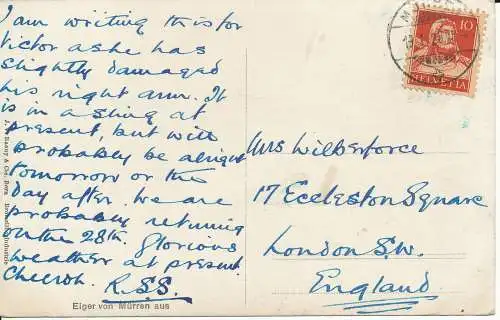 I am writing this for
Victor as he has
slightly damaged
his right arm. It
is in a sling at
present, but will
probably be alright
tomorrow or the
day after. We are
probably returning
on the 28th. Glorious
weather at present.
Cheeroh. R.S.S.
Eiger von Mürren aus
Mrs Wilberforce
17 Eccleston Square
London S.W.
England
10
HELVETIA